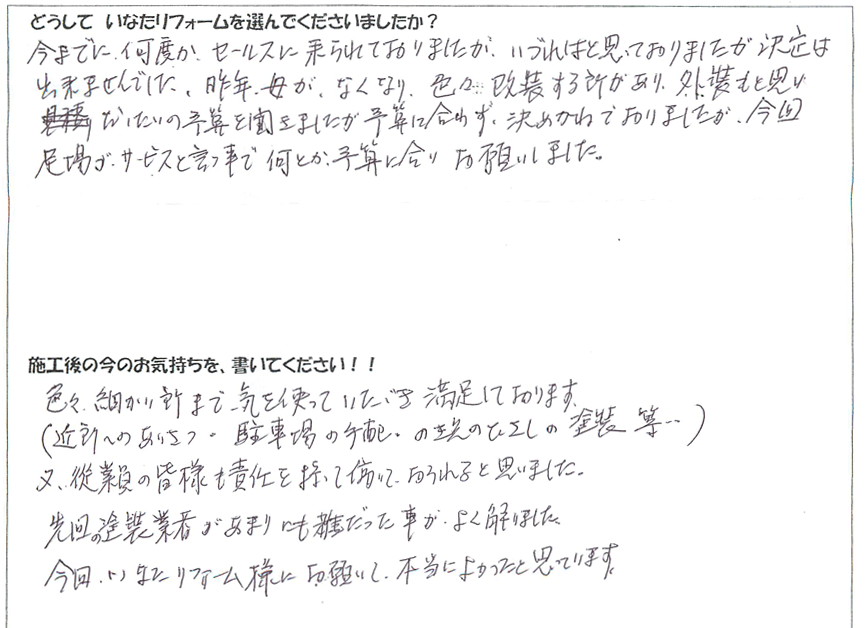 どうして いなたリフォームを選んでくださいましたか？
今までに、何度か、セールスに来られておりましたが、いづれはと思っておりましたが決定は
出来ませんでした。昨年、母が、なくなり、色々改装する所があり、外装もと思い
だいたいの予算を聞きましたが予算に合わず、決めかねておりましたが、今回
足場が、サービスと言う事で何とか、予算に合い お願いしました。
施工後の今のお気持ちを、書いてください！！
色々、細かい所まで気を使っていただき満足しております。
（近所へのあいさつ・駐車場の手配・のき先のひさしの塗装 等…）
又、従業員の皆様も責任を持って働いて、おられると思いました。
先回の塗装業者があまりにも雑だった事が、よく解りました。
今回、いなたリフォーム様にお願いして、本当によかったと思っています。